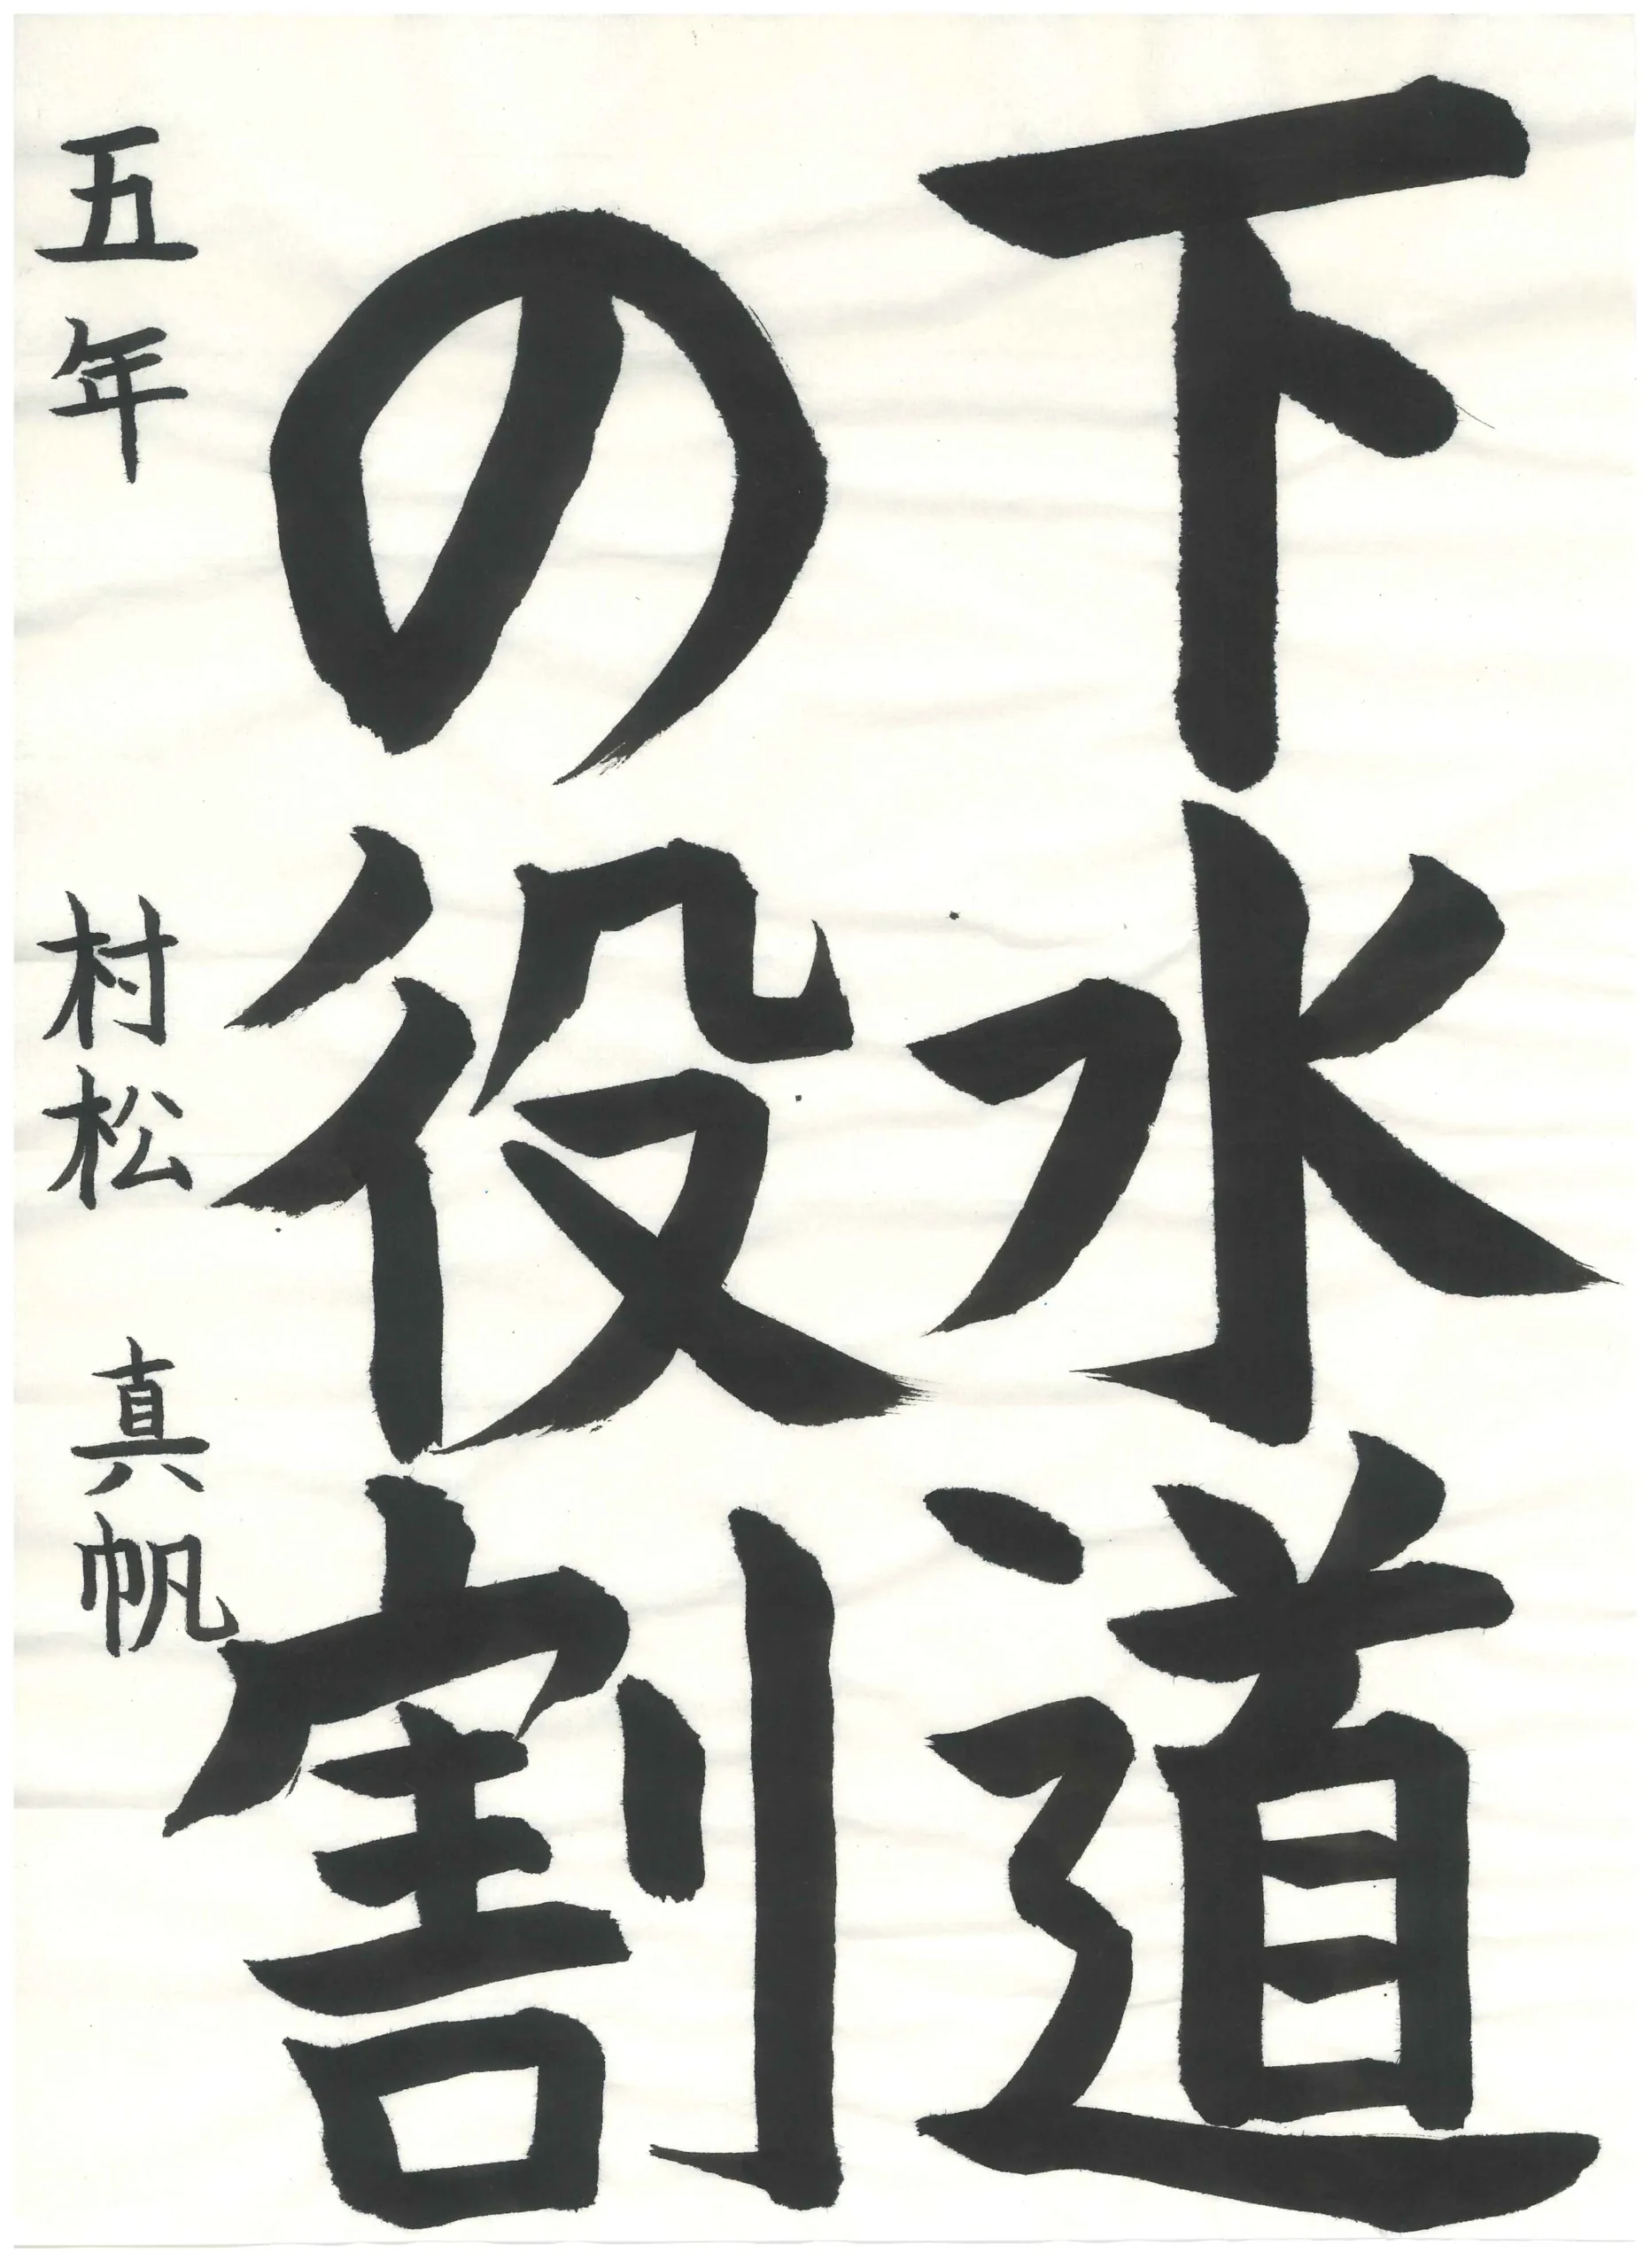 下水道
の役割
五年 村松 真帆